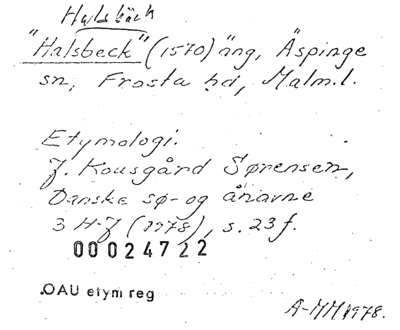 Halsbäck
"Halsbeck" (1570) äng, Äspinge
sn, Frosta hd, Malm.l.
Etymologi.
J. Kousgård Sørensen,
Danske sø- og ånavne
3 H-J (1978), s. 23 f.
00024722
.OAU etym reg
A-MM 1978.